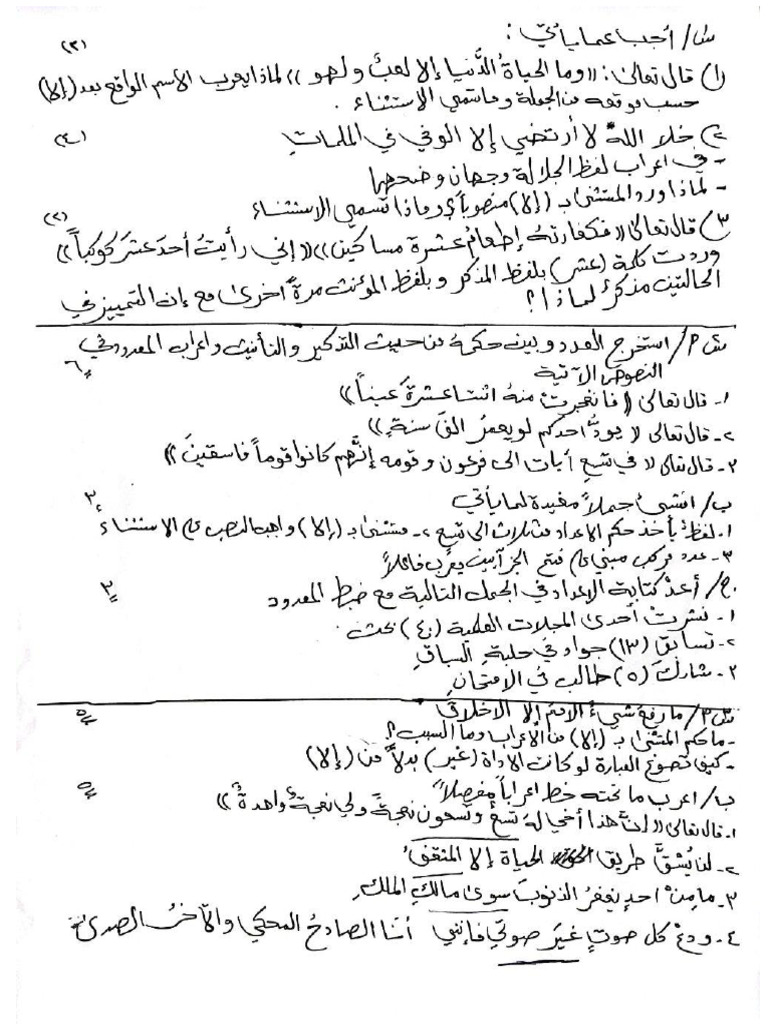 س١/ أجب عما يأتي : (٣)
١) قال تعالى: ((وما الحياةُ الدُّنيا إلا لعبٌ ولهو)) لماذا يعرب الأسم الواقع بعد (إلا)
حسب موقعه من الجملة وما تسمي الاستثناء .
٢) خلا اللهَ لا أرتضي إلا الوفي في الملماتِ (٤)
- في اعراب لفظ الجلالة وجهان وضحهما
- لماذا ورد المستثنى بـ (إلا) منصوباً؟ وماذا تسمي الاستثناء
٣) قال تعالى ((فكفارتهُ إطعامُ عشرة مساكين)) ((إني رأيتُ أحدَ عشرَ كوكباً)) (٢)
وردت كلمة (عشر) بلفظ المذكر و بلفظ المؤنث مرةً اخرى مع إن التمييز في
الحالتين مذكرٌ لماذا؟
س٢ /٢ استخرج العدد و بين حكمهُ من حيث التذكير والتأنيث واعراب المعدود في
النصوص الآتية ٦
١- قال تعالى ((فانفجرتْ منهُ اثنتا عشرةَ عيناً))
٢- قال تعالى ((يودُّ احدكم لو يعمرُ الفَ سنةٍ))
٣- قال تعالى ((في تسعِ آيات الى فرعون وقومه إنَّهم كانوا قوماً فاسقينَ))
ب/ انشئ جملاً مفيدة لما يأتي ٢
١- لفظٌ يأخذ حكم الاعداد من ثلاث الى تسع ٢- مستثنى بـ (إلا) واجب النصب على الاستثناء
٣- عدد مركب مبني على فتح الجزأين يعرب فاعلاً
ج/ أعدْ كتابة الاعداد في الجمل التالية مع ضبط المعدود ٢
١- نشرتْ أحدى المجلات العلمية (٤٠) بحث.
٢- تسابق (١٣) جواد في حلبةِ السباقِ
٣- شاركَ (٥) طالب في الامتحانِ
س٣ /٢ ما رفع شيءٌ الاممَ إلا الاخلاقُ ٥
- ما حكم المستثنى بـ (إلا) من الأعراب وما السبب؟
- كيف تصوغ العبارة لو كانت الاداة (غير) بدلاً من (إلا)
ب/ اعرب ما تحته خط اعراباً مفصلاً ٥
١- قال تعالى ((إنَّ هذا أخي لهُ تسعٌ وتسعون نعجةً ولي نعجةٌ واحدةٌ))
٢- لن يُشقَّ طريق الحياة إلا المثقفُ
٣- ما مِنْ احدٍ يغفرُ الذنوبَ سوى مالكِ الملكِ
٤- ودعْ كل صوتٍ غيرَ صوتي فإنني أنَا الصادحُ المحكي والآخرُ الصدى